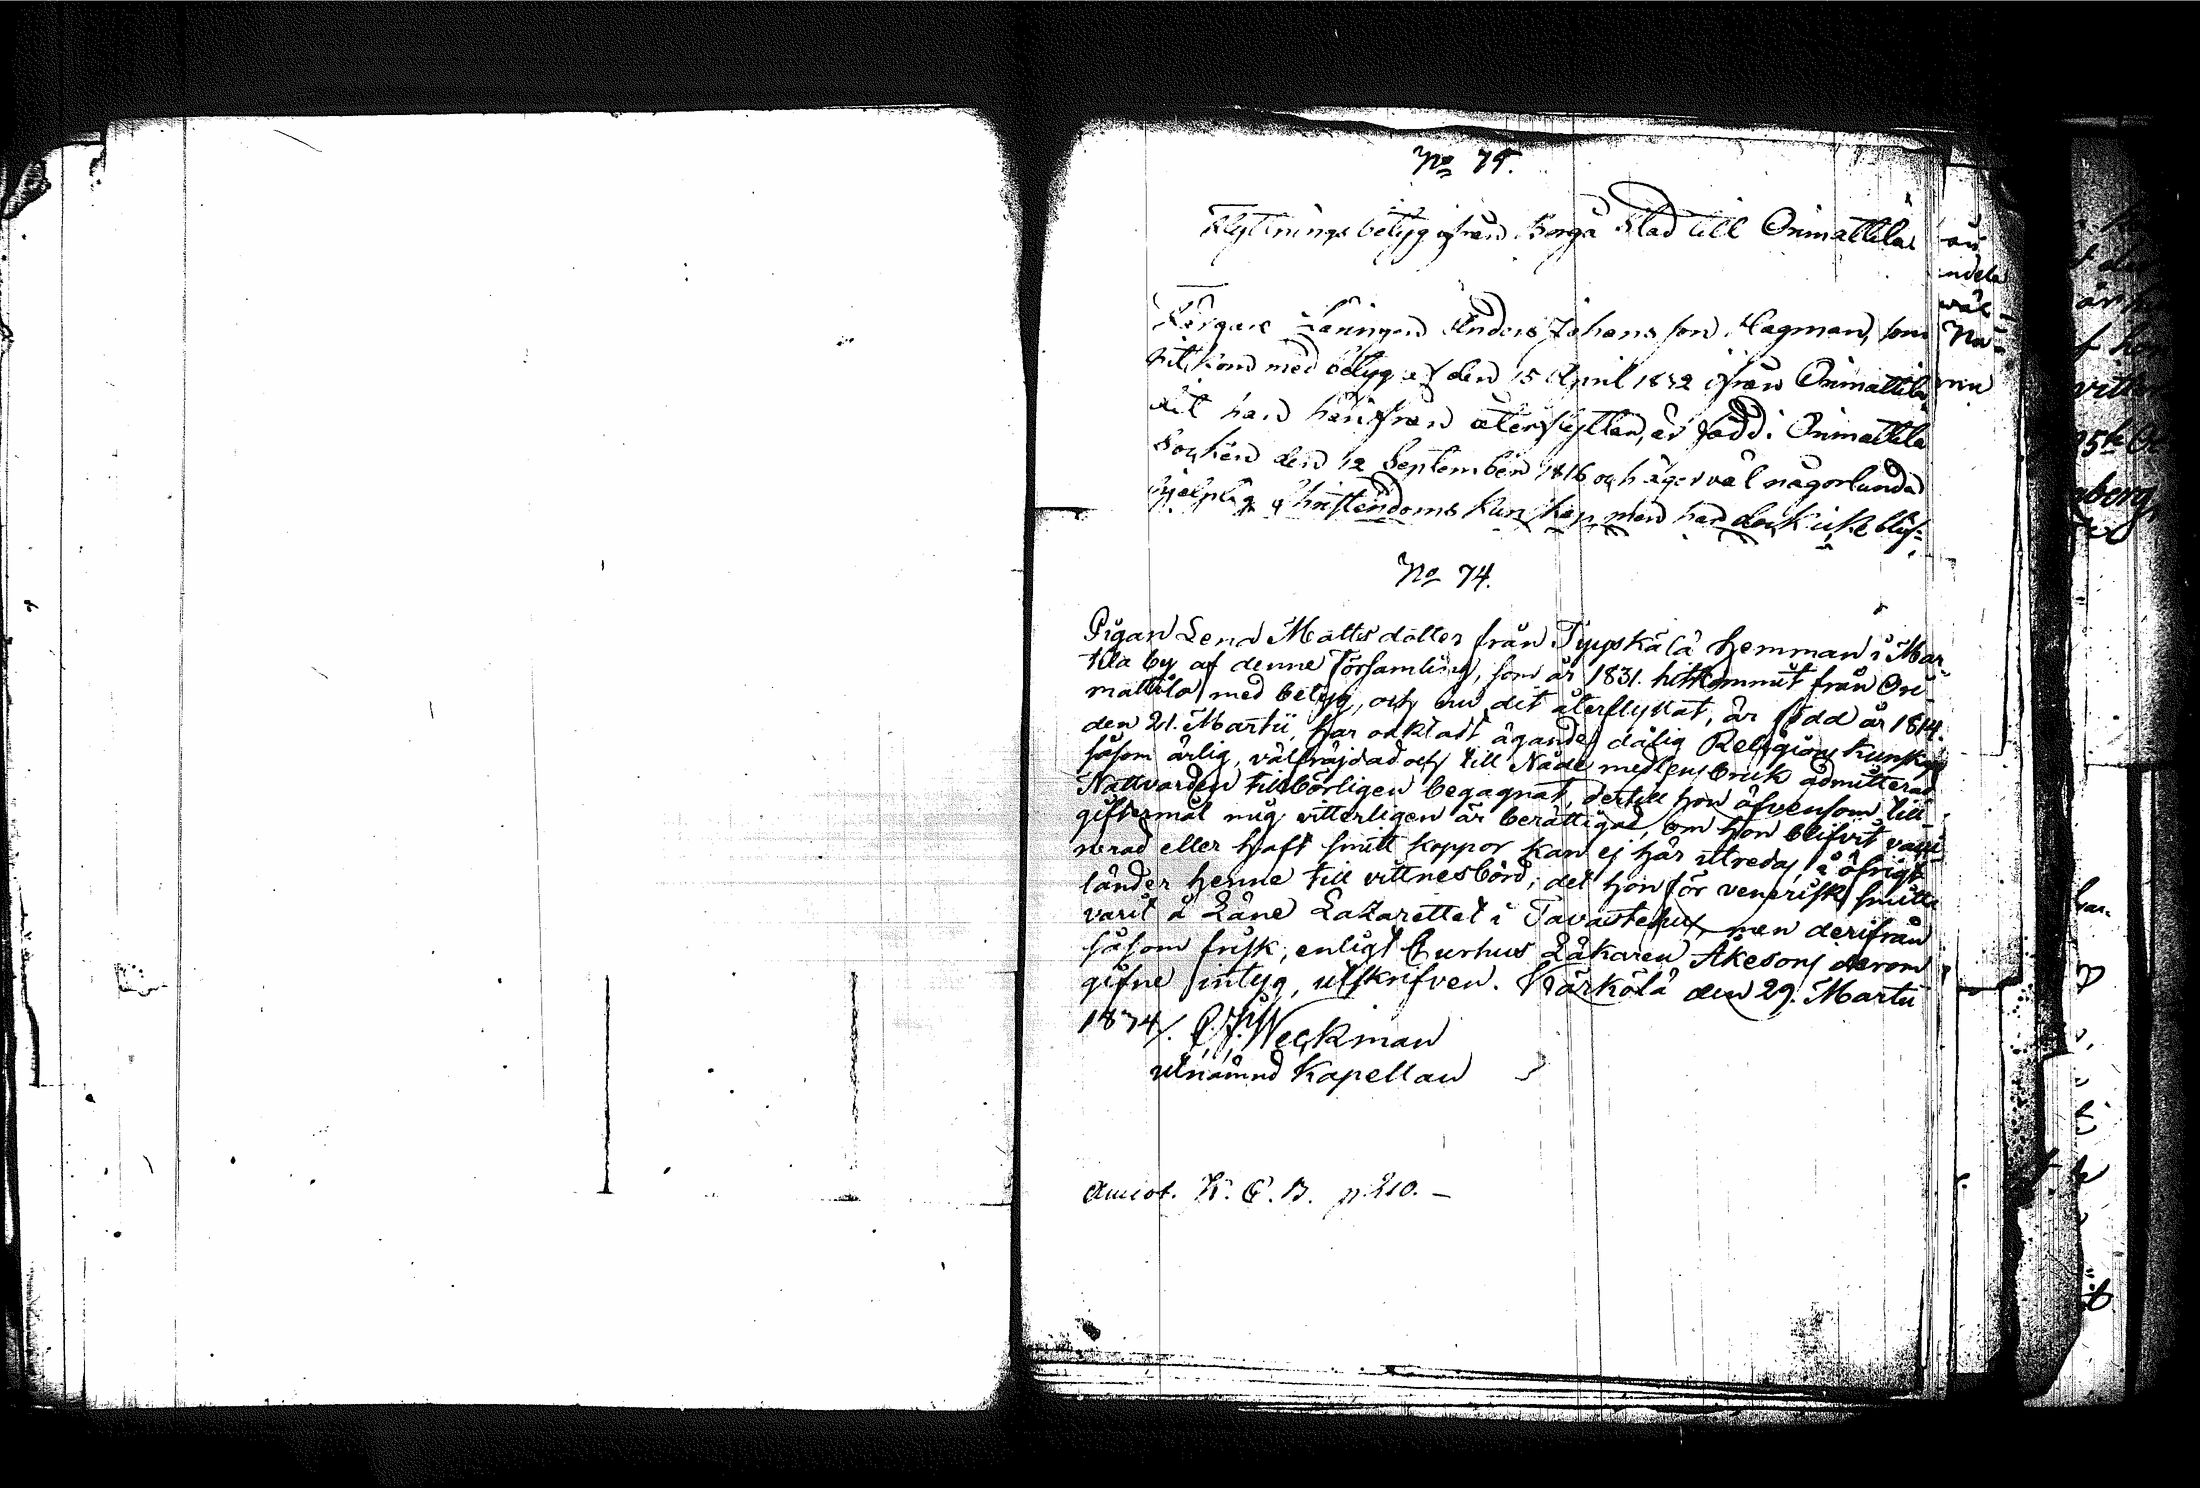 No 75.
Flyttnings betyg ifrån Borgå Stad till Orimattila
Färgare Lärlingen Anders Johansson Hagman, som
hitkom med betyg af den 15 April 1832 ifrån Orimattila
dit han härifrån återflyttar, är född i Orimattila
Socken den 12 September 1816 och äger väl någorlunda
hjelplig Christendoms kunskap men har dock icke blif-
No 74.
Pigan Lena Mattsdotter från Typpskälä Hemman i Mar-
tila by af denne Församling, som år 1831. hitkommit från Ori-
mattila med betyg, och nu dit återflyttat, är född år 1814.
den 21. Martii, har oskladt ägande dålig Religions kunskap
såsom ärlig, välfräjdad och till Nåde medlens bruk admitterad
Nattvarden tillbörligen begagnat, dertill hon äfvensom till
giftermål mig vitterligen är berättigad, om hon blifvit vacci-
nerad eller haft smitt koppor kan ej här utredas, i öfrigt
länder henne till vittnesbörd, det hon för venerisk smitta
varit å Läne Lazarettet i Tavastehus, men derifrån
såsom frisk, enligt Curhus Läkaren Åkesons derom
gifne intyg, utskrifven. Kärkölä den 29. Martii
1834/. Weckman
utnämnd Kapellan
K. C. B. p 210. –